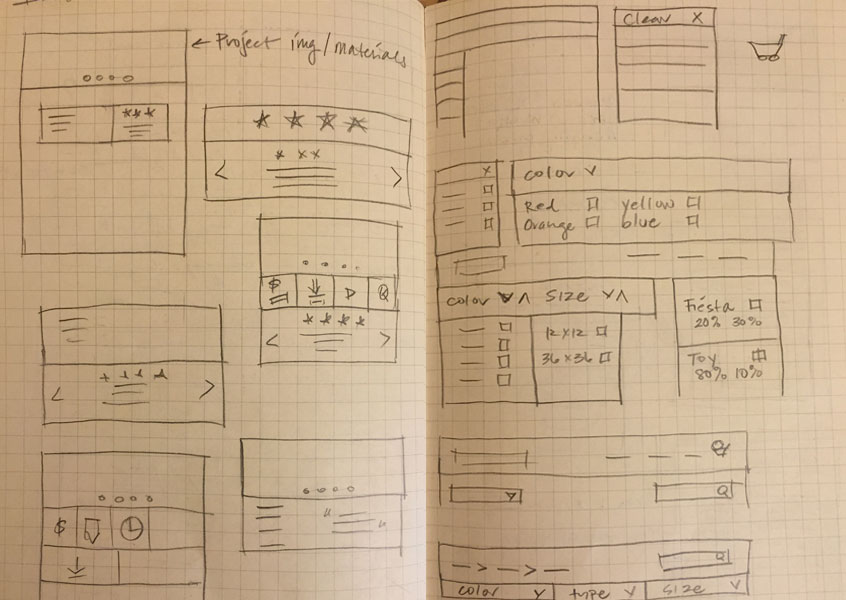 ← Project img/materials
$
Q
$
Clear X
X
color
Red yellow
Orange blue
color size
12x12
36x36
Fiésta
20% 30%
Toy
80% 10%
Q
Q
Q
color type size